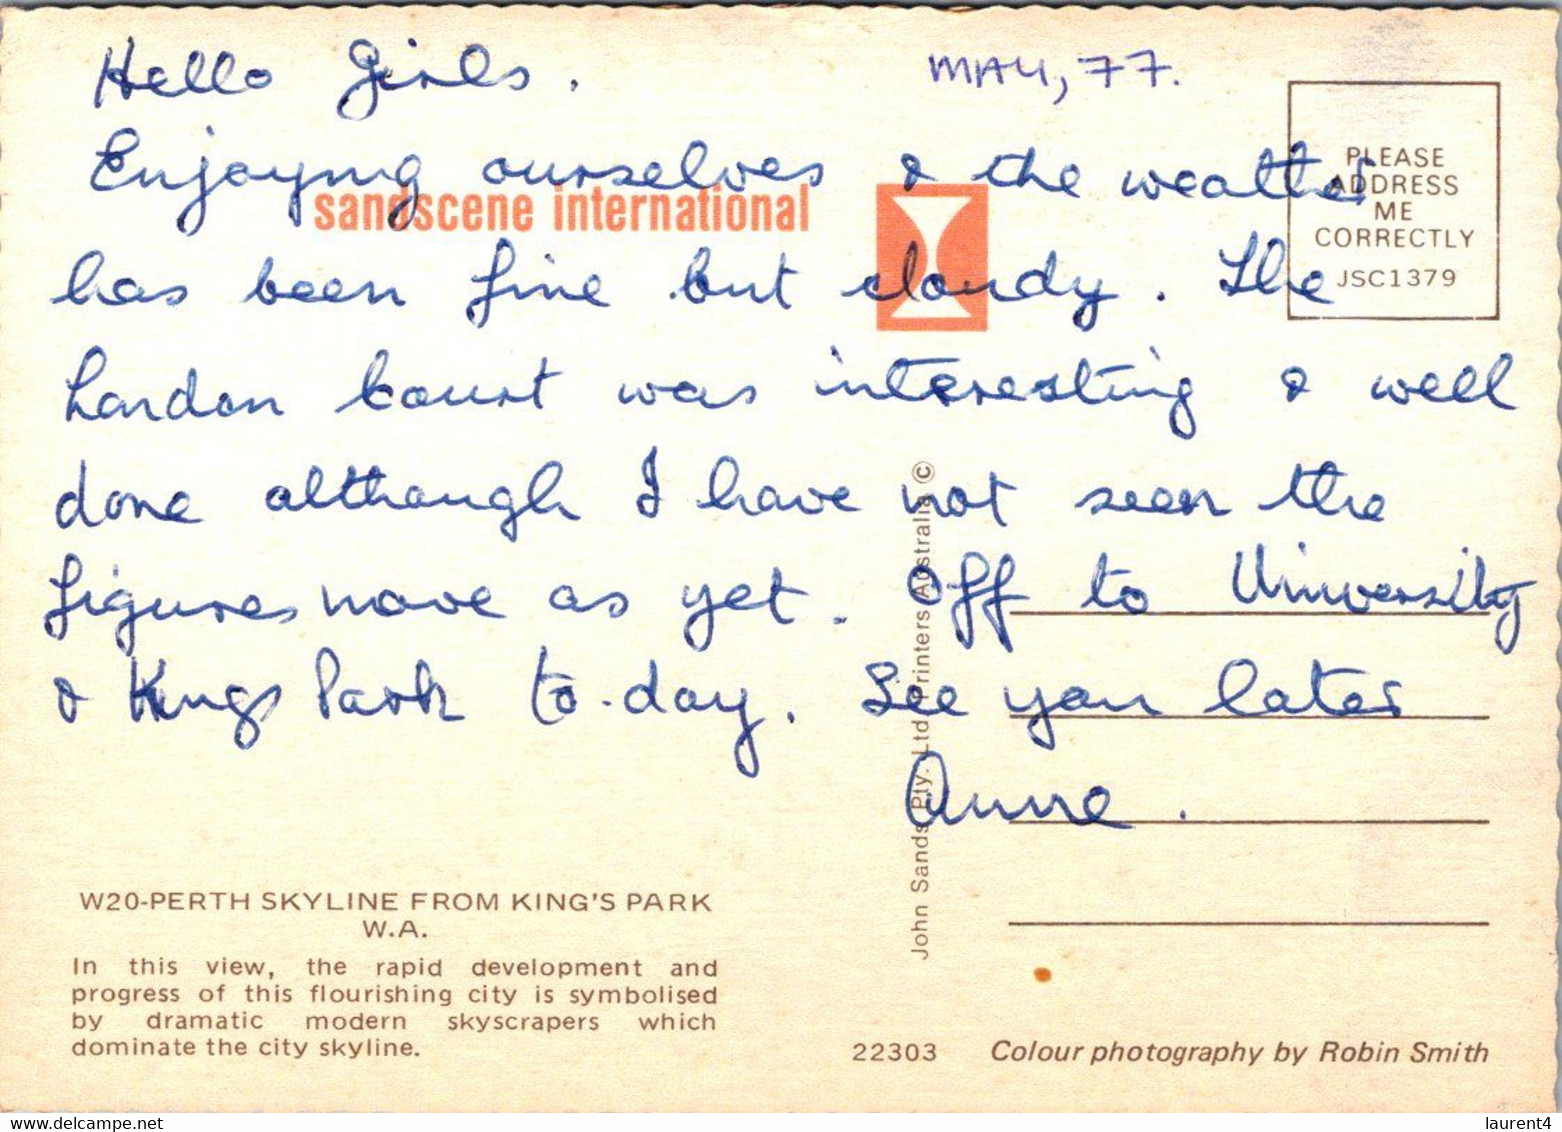 Hello Girls.
MAY, 77.
Enjoying ourselves & the weather
has been fine but cloudy. The
London Court was interesting & well
done although I have not seen the
figures move as yet. Off to University
& Kings Park to-day. See you later
Anne.
sandscene international
PLEASE
ADDRESS
ME
CORRECTLY
JSC1379
John Sands Pty. Ltd Printers Australia ©
W20-PERTH SKYLINE FROM KING'S PARK
W.A.
In this view, the rapid development and
progress of this flourishing city is symbolised
by dramatic modern skyscrapers which
dominate the city skyline.
22303
Colour photography by Robin Smith
delcampe.net
laurent4